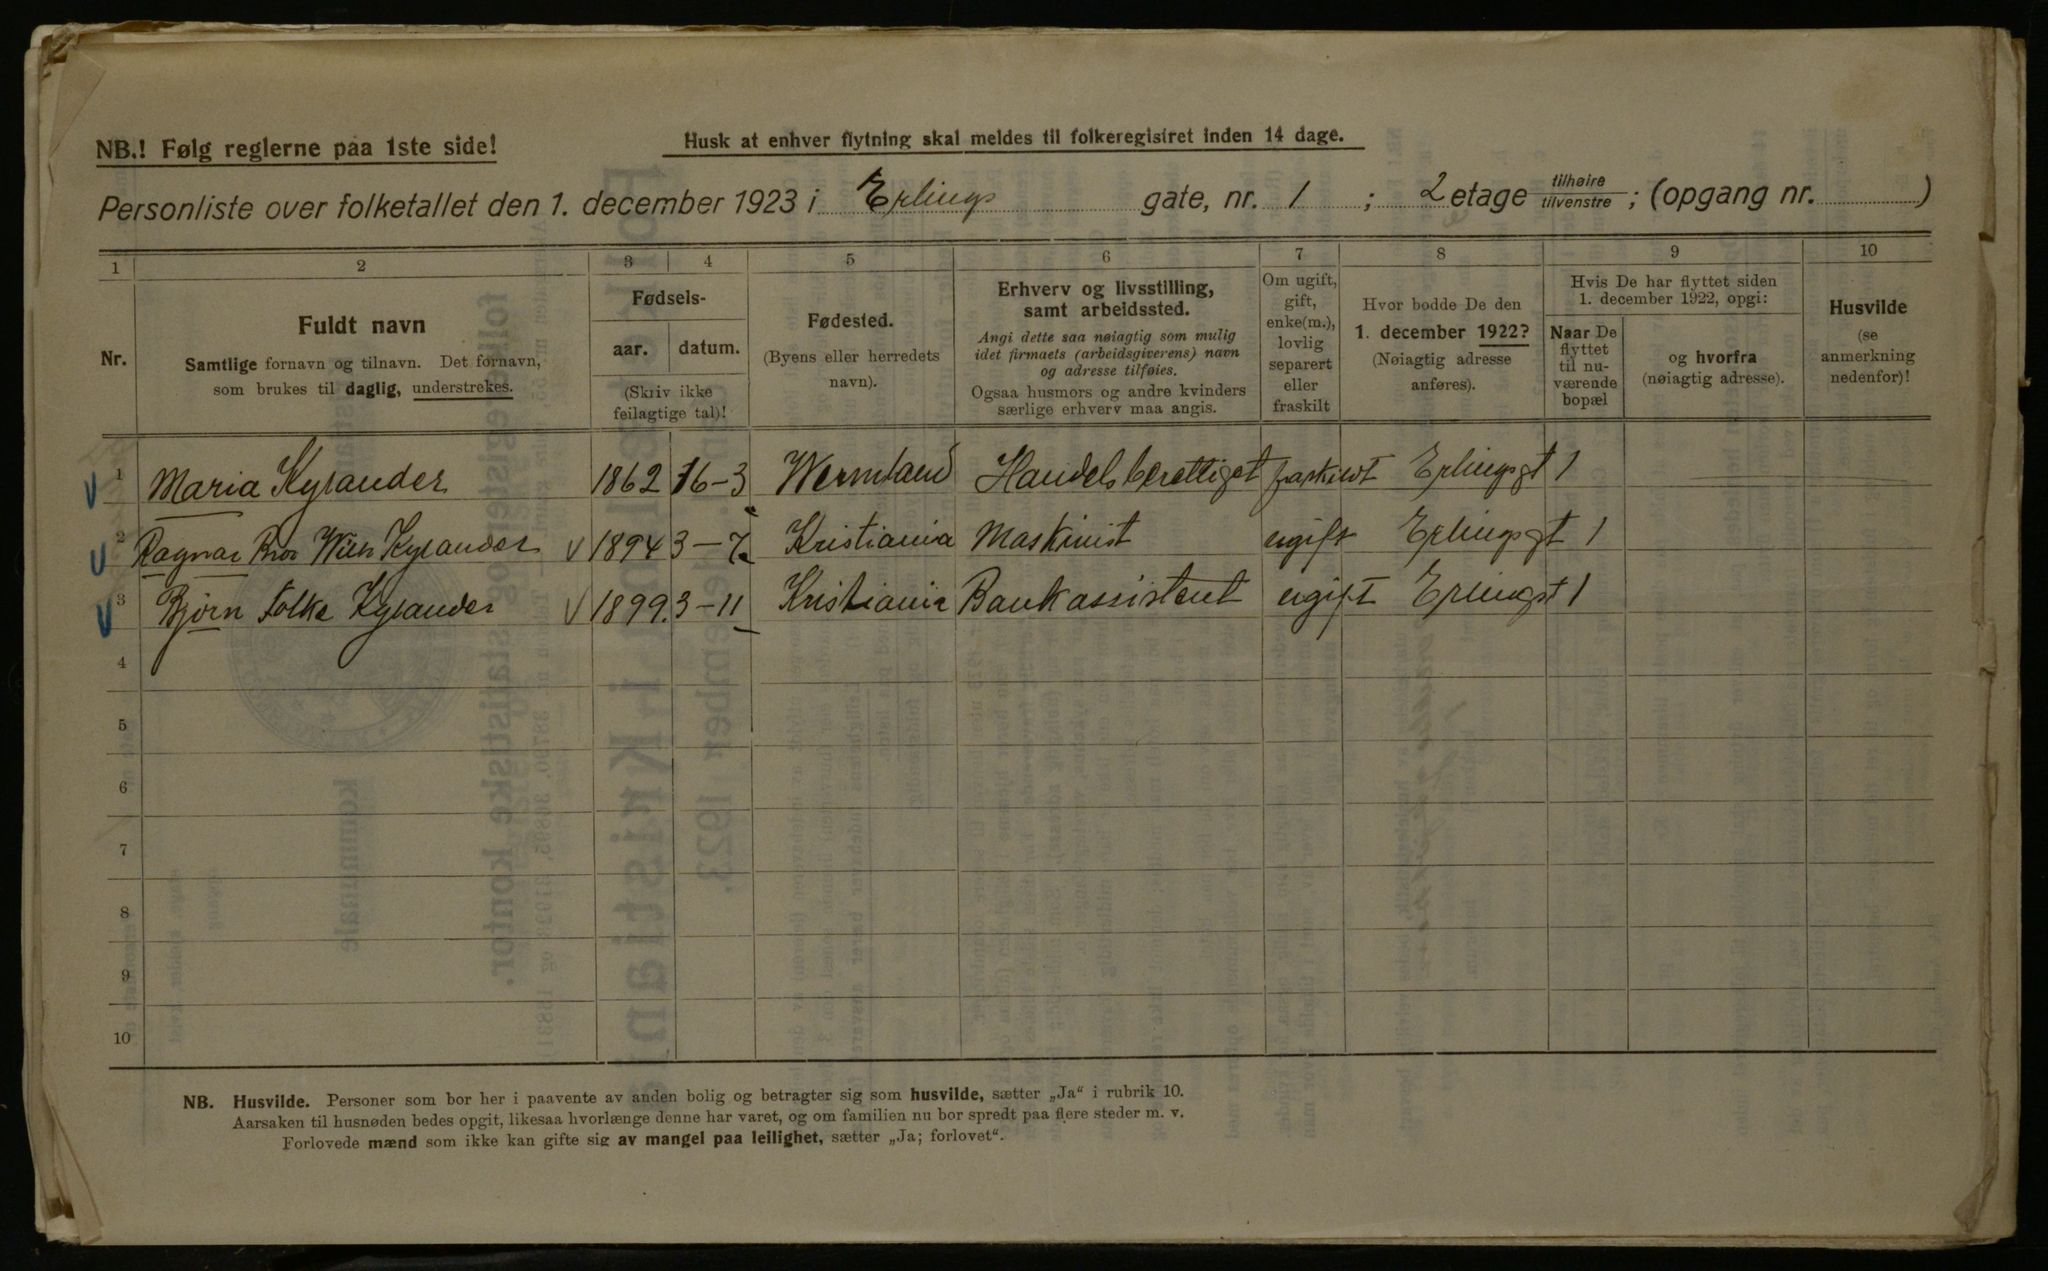 NB.! Følg reglerne paa 1ste side!
Husk at enhver flytning skal meldes til folkeregistret inden 14 dage.
Personliste over folketallet den 1. december 1923 i Erlings gate, nr. 1 ; 2 etage tilhøire tilvenstre ; (opgang nr. )
1 2 3 4 5 6 7 8 9 10
Nr.
Fuldt navn
Samtlige fornavn og tilnavn. Det fornavn,
som brukes til daglig, understrekes.
Fødsels-
aar. datum.
(Skriv ikke
feilagtige tal)!
Fødested.
(Byens eller herredets
navn).
Erhverv og livsstilling,
samt arbeidssted.
Angi dette saa nøiagtig som mulig
idet firmaets (arbeidsgiverens) navn
og adresse tilføies.
Ogsaa husmors og andre kvinders
særlige erhverv maa angis.
Om ugift,
gift,
enke(m.),
lovlig
separert
eller
fraskilt
Hvor bodde De den
1. december 1922?
(Nøiagtig adresse
anføres).
Hvis De har flyttet siden
1. december 1922, opgi:
Naar De
flyttet
til nu-
værende
bopæl
og hvorfra
(nøiagtig adresse).
Husvilde
(se
anmerkning
nedenfor)!
1 Maria Kylander 1862 16-3 Wermland Handelsberettiget fraskilt Erlingsgt 1
2 Ragnar Bror Wilh Kylander 1894 3-7 Kristiania Maskinist ugift Erlingsgt 1
3 Bjørn Folke Kylander 1899. 3-11 Kristiania Bankassistent ugift Erlingsgt 1
4
5
6
7
8
9
10
NB. Husvilde. Personer som bor her i paavente av anden bolig og betragter sig som husvilde, sætter „Ja“ i rubrik 10.
Aarsaken til husnøden bedes opgit, likesaa hvorlænge denne har varet, og om familien nu bor spredt paa flere steder m. v.
Forlovede mænd som ikke kan gifte sig av mangel paa leilighet, sætter „Ja; forlovet“.